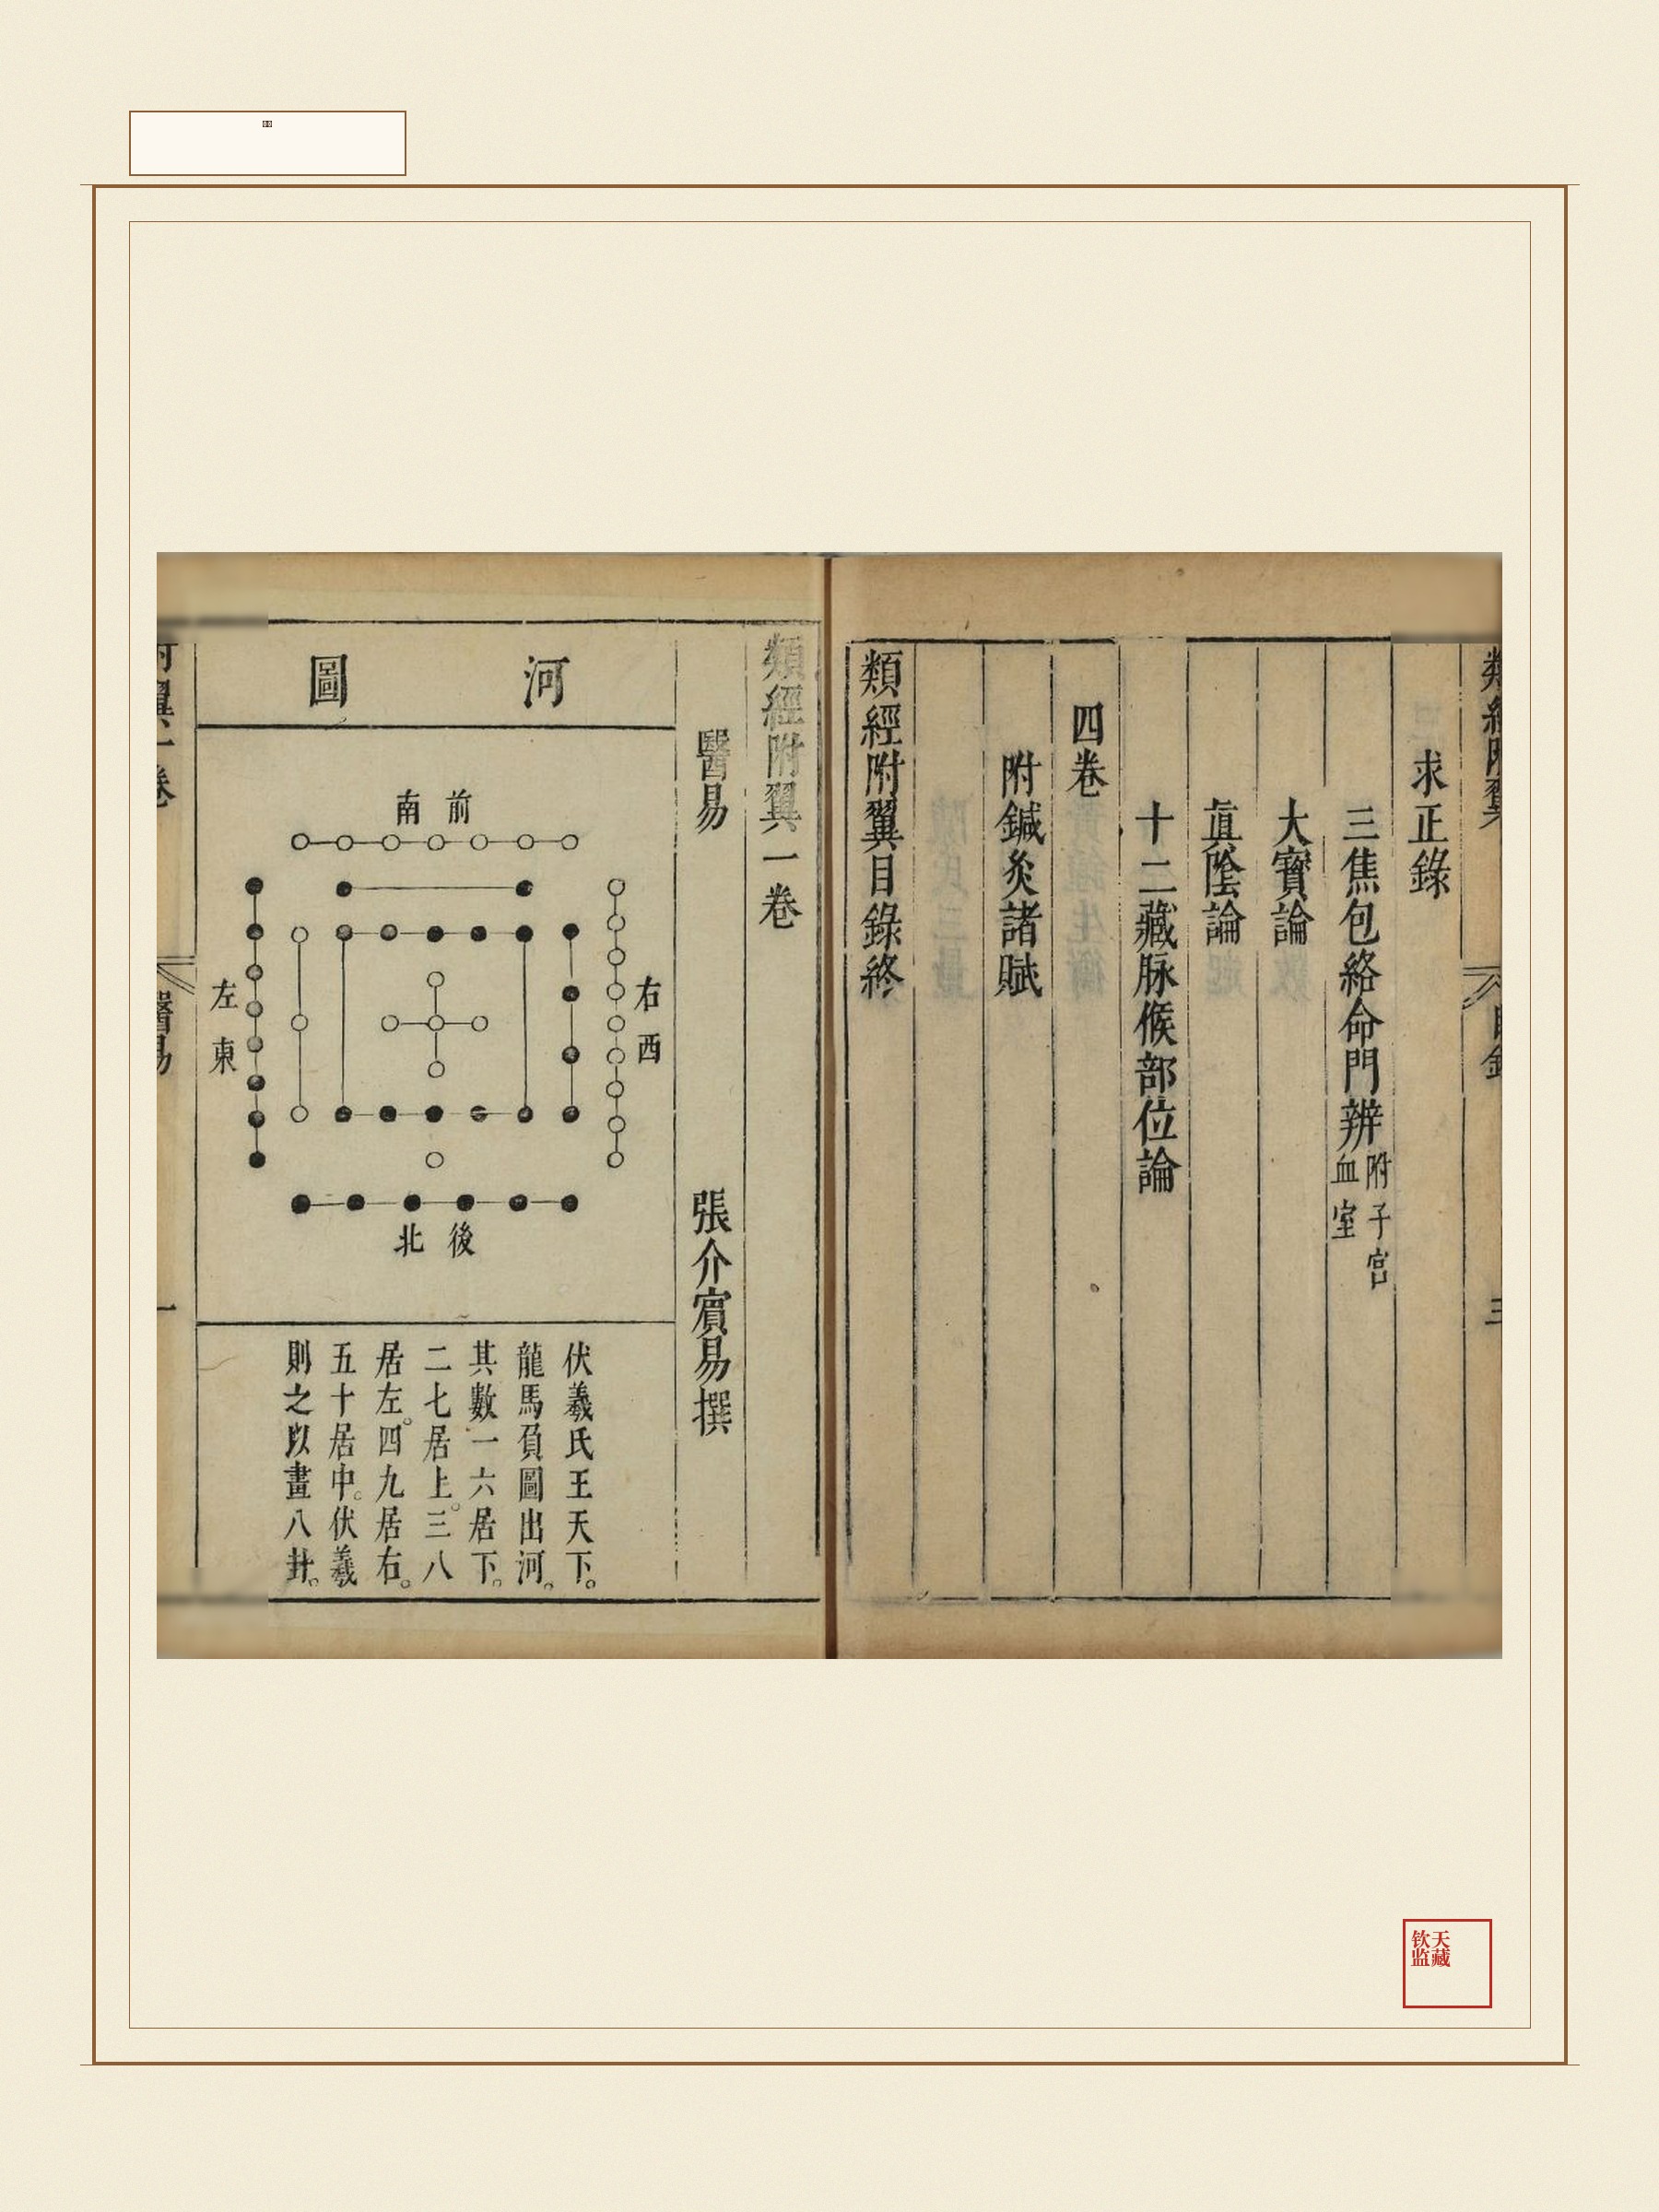 類經附翼
求正錄
三焦包絡命門辨附子宮血室
大寶論
眞陰論
十二藏脉候部位論
四卷
附鍼灸諸賦
類經附翼目錄終
類經附翼一卷
醫易
張介賓易撰
河圖
前南
右西
左東
後北
伏羲氏王天下。
龍馬負圖出河。
其數一六居下。
二七居上。三八
居左。四九居右。
五十居中。伏羲
則之以畫八卦。
醫易
一
天藏
钦监